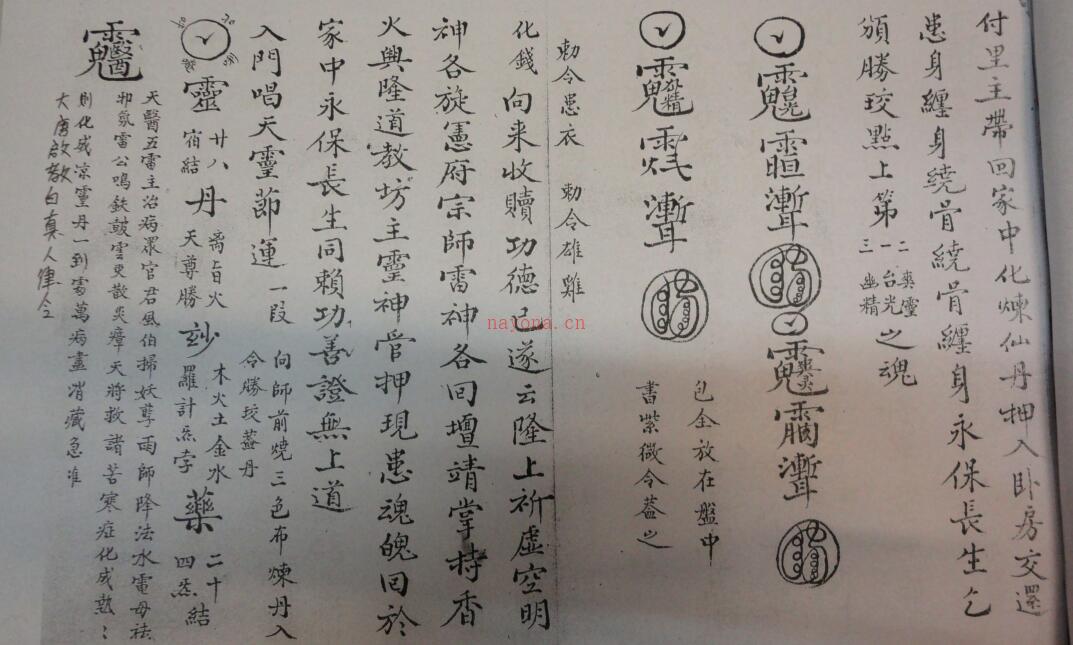 付里主帶回家中化煉仙丹押入卧房交還
患身纏身繞骨繞骨纏身永保長生乞
頒勝珓點上第
三一二
幽精 台光 爽靈
之魂
敕令患衣 敕令雄雞
包全放在盤中
書紫微令蓋之
化錢 向来收贖功德已遂云隆上祈虛空明
神各旋憲府宗師雷神各回壇靖掌持香
火興隆道教坊主靈神管押現患魂魄回於
家中永保長生同賴功善證無上道
入門唱天靈節運一段
向師前燒三色布煉丹入
令勝珓蓋丹
靈
廿八
宿結
丹
火
天尊勝
玅
木火土金水
羅計炁孛
藥
二十
四炁結
天醫五雷主治病眾官君風伯掃妖孽雨師降法水電母祛
邪氛雷公鳴鉄鼓雲吏散炎瘴天將救諸苦寒症化成熱
則化成涼靈丹一到處萬病盡消藏急准
大唐啟教白真人律令
nayona.cn